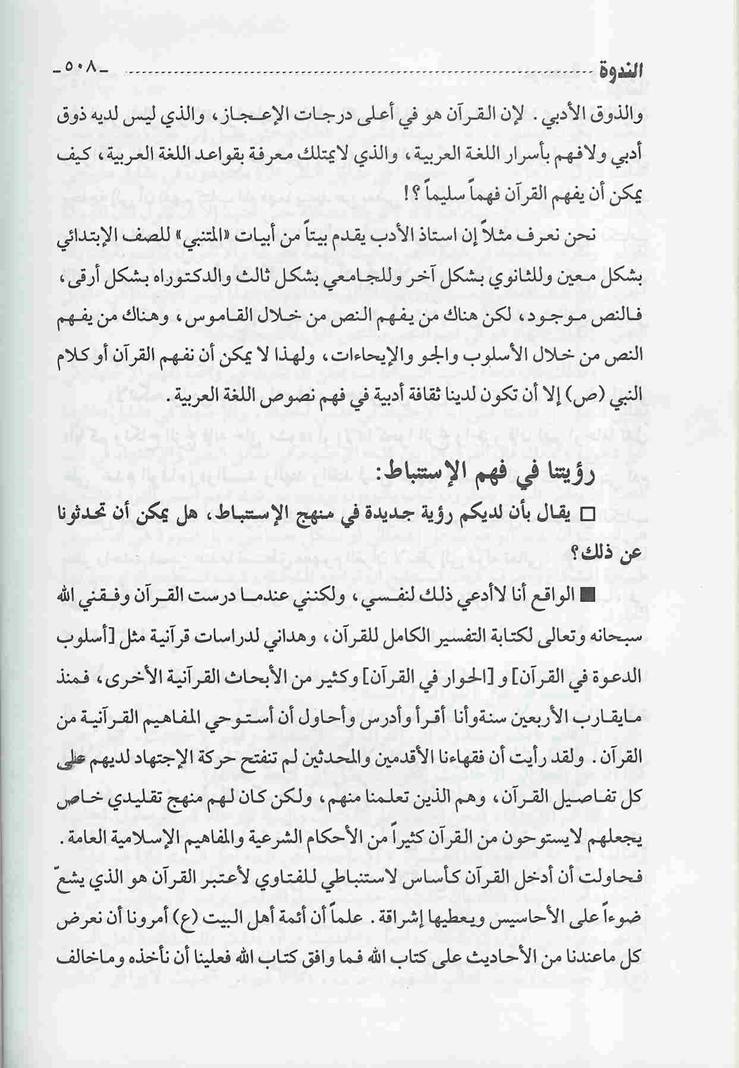 الندوة ........................ -٥٠٨-
والذوق الأدبي. لإن القرآن هو في أعلى درجات الإعجاز، والذي ليس لديه ذوق
أدبي ولافهم بأسرار اللغة العربية، والذي لايمتلك معرفة بقواعد اللغة العربية، كيف
يمكن أن يفهم القرآن فهماً سليماً؟!
نحن نعرف مثلاً إن استاذ الأدب يقدم بيتاً من أبيات «المتنبي» للصف الإبتدائي
بشكل معين وللثانوي بشكل آخر وللجامعي بشكل ثالث والدكتوراه بشكل أرقى،
فالنص موجود، لكن هناك من يفهم النص من خلال القاموس، وهناك من يفهم
النص من خلال الأسلوب والجو والإيحاءات، ولهذا لا يمكن أن نفهم القرآن أو كلام
النبي (ص) إلا أن تكون لدينا ثقافة أدبية في فهم نصوص اللغة العربية.
رؤيتنا في فهم الإستنباط:
□ يقال بأن لديكم رؤية جديدة في منهج الإستنباط، هل يمكن أن تحدثونا
عن ذلك؟
■ الواقع أنا لاأدعي ذلك لنفسي، ولكنني عندما درست القرآن وفقني الله
سبحانه وتعالى لكتابة التفسير الكامل للقرآن، وهداني لدراسات قرآنية مثل [أسلوب
الدعوة في القرآن] و [الحوار في القرآن] وكثير من الأبحاث القرآنية الأخرى، فمنذ
مايقارب الأربعين سنةوأنا أقرأ وأدرس وأحاول أن أستوحي المفاهيم القرآنية من
القرآن. ولقد رأيت أن فقهاءنا الأقدمين والمحدثين لم تنفتح حركة الإجتهاد لديهم على
كل تفاصيل القرآن، وهم الذين تعلمنا منهم، ولكن كان لهم منهج تقليدي خاص
يجعلهم لايستوحون من القرآن كثيراً من الأحكام الشرعية والمفاهيم الإسلامية العامة.
فحاولت أن أدخل القرآن كأساس لاستنباطي للفتاوي لأعتبر القرآن هو الذي يشعّ
ضوءاً على الأحاسيس ويعطيها إشراقة. علماً أن أئمة أهل البيت (ع) أمرونا أن نعرض
كل ماعندنا من الأحاديث على كتاب الله فما وافق كتاب الله فعلينا أن نأخذه وماخالف